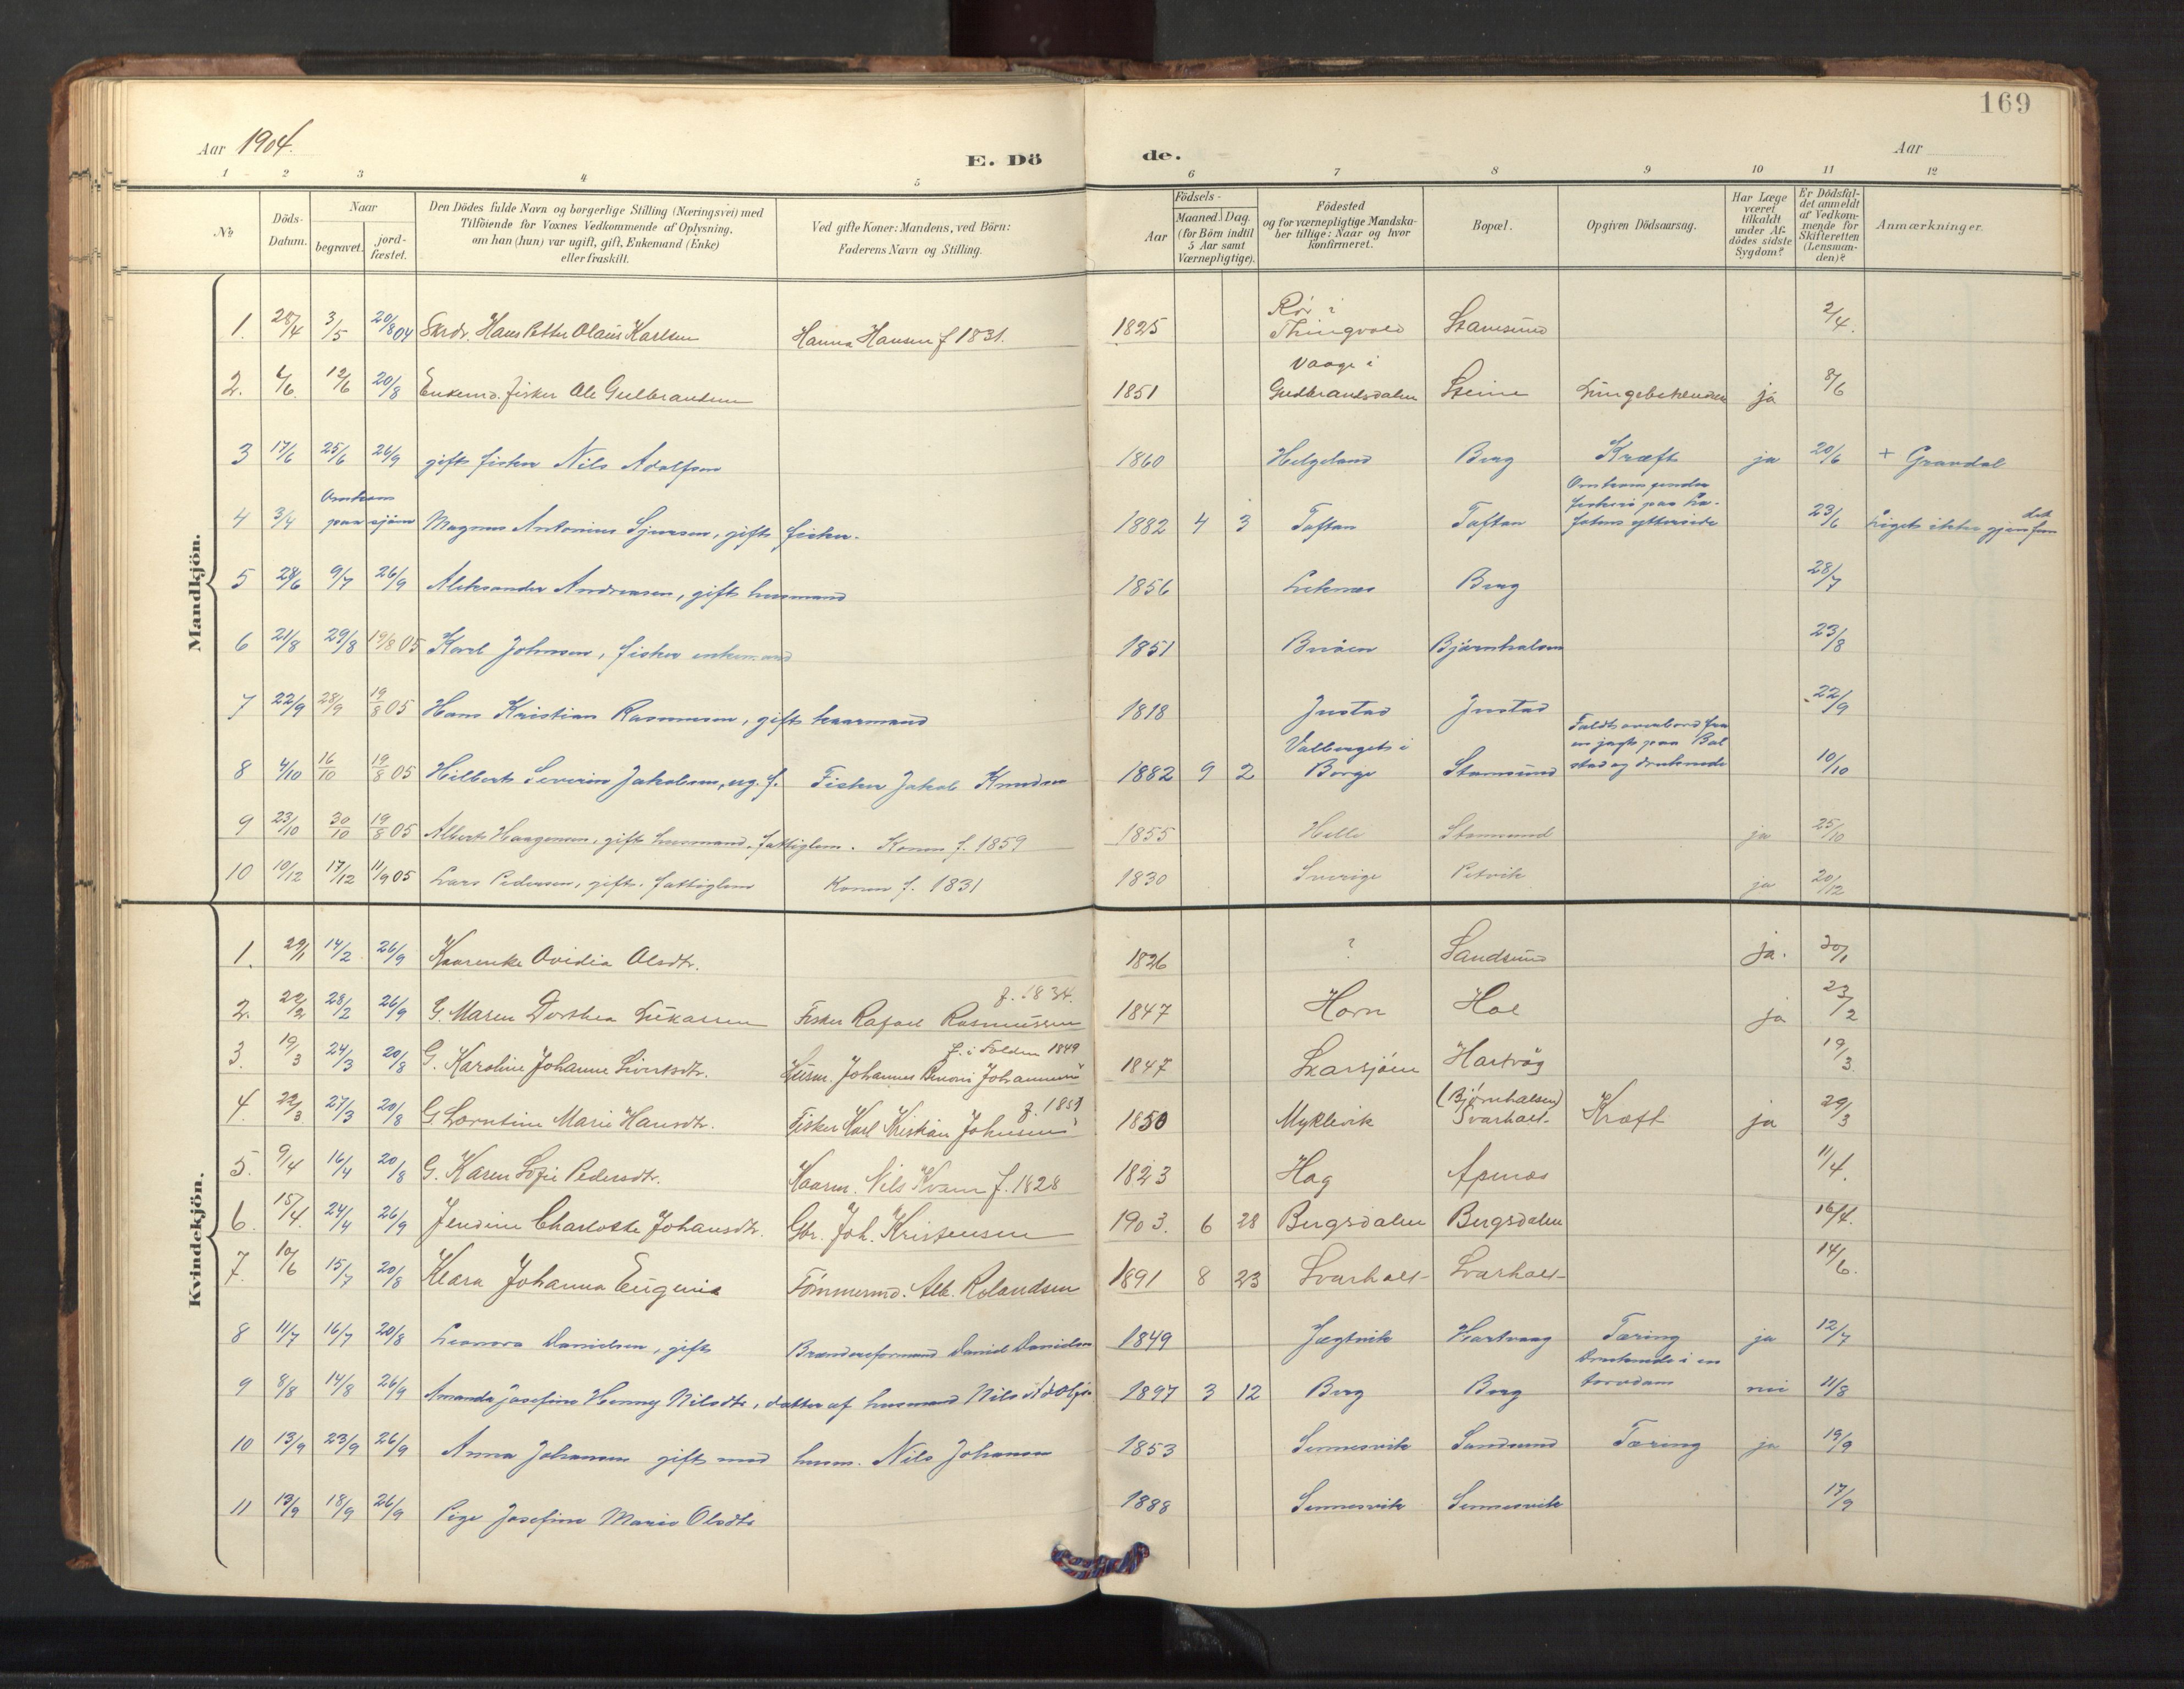 169
Aar 1904.
E. Dö de.
Aar
1 2 3 4 5 6 7 8 9 10 11 12
No
Döds-Datum.
Naar
begravet.
jord-fæstet.
Den Dödes fulde Navn og borgerlige Stilling (Næringsvei) med
Tilföiende for Voxnes Vedkommende af Oplysning,
om han (hun) var ugift, gift, Enkemand (Enke)
eller fraskilt.
Ved gifte Koner: Mandens, ved Börn:
Faderens Navn og Stilling.
Födsels-
Aar
Maaned. Dag.
(for Börn indtil
5 Aar samt
Værnepligtige).
Födested
og for værnepligtige Mandska-
ber tillige: Naar og hvor
konfirmeret.
Bopæl.
Opgiven Dödsaarsag.
Har Læge
været
tilkaldt
under Af-
dödes sidste
Sygdom?
Er Dödsfal-
det anmeldt
af Vedkom-
mende for
Skifteretten
(Lensman-
den)?
Anmærkninger.
Mandkjön.
1. 28/4 3/5 20/8 04 Hans Petter Olaus Karlsen Hanna Hansen f 1831. 1825 Rör i Thingvold Stamsund 2/4.
2. 6/6. 12/6 20/8 Enkemd. fisker Ole Gulbrandsen 1851 Vaage i Gudbrandsdalen Steine Lungebetændelse ja 8/6
3 17/6 25/6 26/9 gift fisker Nils Adolfsen 1860 Helgeland Berg Kræft ja 20/6 + Gravdal
4 3/4 Omkom paa sjöen Magnus Antonius Sjursen, gift fisker. 1882 4 3 Toftan Toftan Omkom under fiskeri paa Lo-fotens ytterside 23/6 Liget ikke gjenfun det
5 28/6 9/7 26/9 Aleksander Andreasen, gift husmand 1856 Leknes Berg 28/7
6 21/8 29/8 19/8 05 Karl Johnsen, fisker enkemand 1851 Bröen Björnhalsen 23/8
7 22/9 28/9 19/8 05 Hans Kristian Rasmussen, gift kaarmand 1818 Justad Justad 22/9
8 4/10 16/10 19/8 05 Hilbert Severin Jakobsen, ug. f. Fisker Jakob Knudsen 1882 9 2 Valberget i Borge Stamsund Faldt overbord fra en jagt paa Bal stad og druknede 10/10
9 23/10 30/10 19/8 05 Albert Haagensen, gift husmand. fattiglem. Konen f. 1859 1855 Helle Stamsund ja 25/10
10 10/12 17/12 11/9 05 Lars Pedersen, gift, fattiglem Konen f. 1831 1830 Sverige Petvik ja 20/12
Kvindekjön.
1. 29/1 14/2 26/9 Kaarenke Ovidia Olsdtr. 1826 ? Sandsund ja. 30/1
2. 22/2 28/2 26/9 G. Maren Dorthea Lukassen Fisker Rafael Rasmussen f. 1834. 1847 Horn Hol ja 23/2
3. 19/3 24/3 20/8 G. Karoline Johanne Sivertsdtr. Husm. Johannes Benoni Johannesen f. i Folden 1849 1847 Skarsjöen Hartvåg 19/3.
4. 22/3 27/3 20/8 G. Lorntine Marie Hansdtr. Fisker Karl Kristian Johnsen f. 1851 1850 Myklevik (Björnhalsen) Svarholt. Kræft ja 29/3
5. 9/4 16/4 20/8 G. Karen Sofie Pedersdtr. Kaarm. Nils Kvam f. 1828 1823 Hag Apenes 11/4.
6. 15/4. 24/4 26/9 Jensine Charlotte Johansdtr. Gbr. Joh. Kristensen 1903. 6 28 Bergsdalen Bergsdalen 16/4.
7. 10/6 15/7 20/8 Klara Johanna Eugenia Tömmermd. Alb. Rolandsen 1891 8 23 Svarholt Svarholt 14/6.
8 11/7 16/7 20/8 Leonora Danielsen, gift Daniel Danielsen 1849 Jægtvik Hartvaag Tæring ja 12/7
9 8/8 14/8 26/9 Amanda Josefine Henny Nilsdtr, datter af husmand Nils Adolfs. 1897 3 12 Berg Berg Druknede i en torvdam nei 11/8
10 13/9 23/9 26/9 Anna Johansen gift med husm. Nils Johansen 1853 Sennesvik Sandsund Tæring ja 19/9
11 13/9 18/9 26/9 Pige Josefine Marie Olsdtr 1888 Sennesvik Sennesvik 17/9